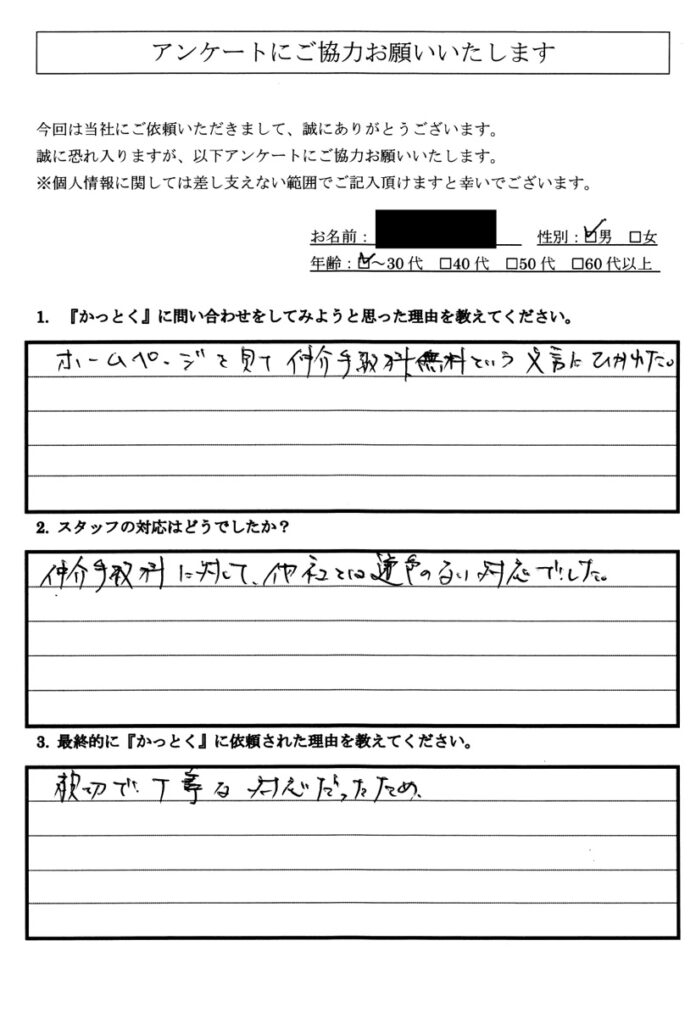 アンケートにご協力お願いいたします
今回は当社にご依頼いただきまして、誠にありがとうございます。
誠に恐れ入りますが、以下アンケートにご協力お願いいたします。
※個人情報に関しては差し支えない範囲でご記入頂けますと幸いでございます。
お名前： 性別：☑男 □女
年齢：☑～30代 □40代 □50代 □60代以上
1. 『かっとく』に問い合わせをしてみようと思った理由を教えてください。
ホームページを見て仲介手数料無料という文言にひかれた。
2. スタッフの対応はどうでしたか？
仲介手数料に対して、他社とは遜色のない対応でした。
3. 最終的に『かっとく』に依頼された理由を教えてください。
親切で丁寧な対応だったため、